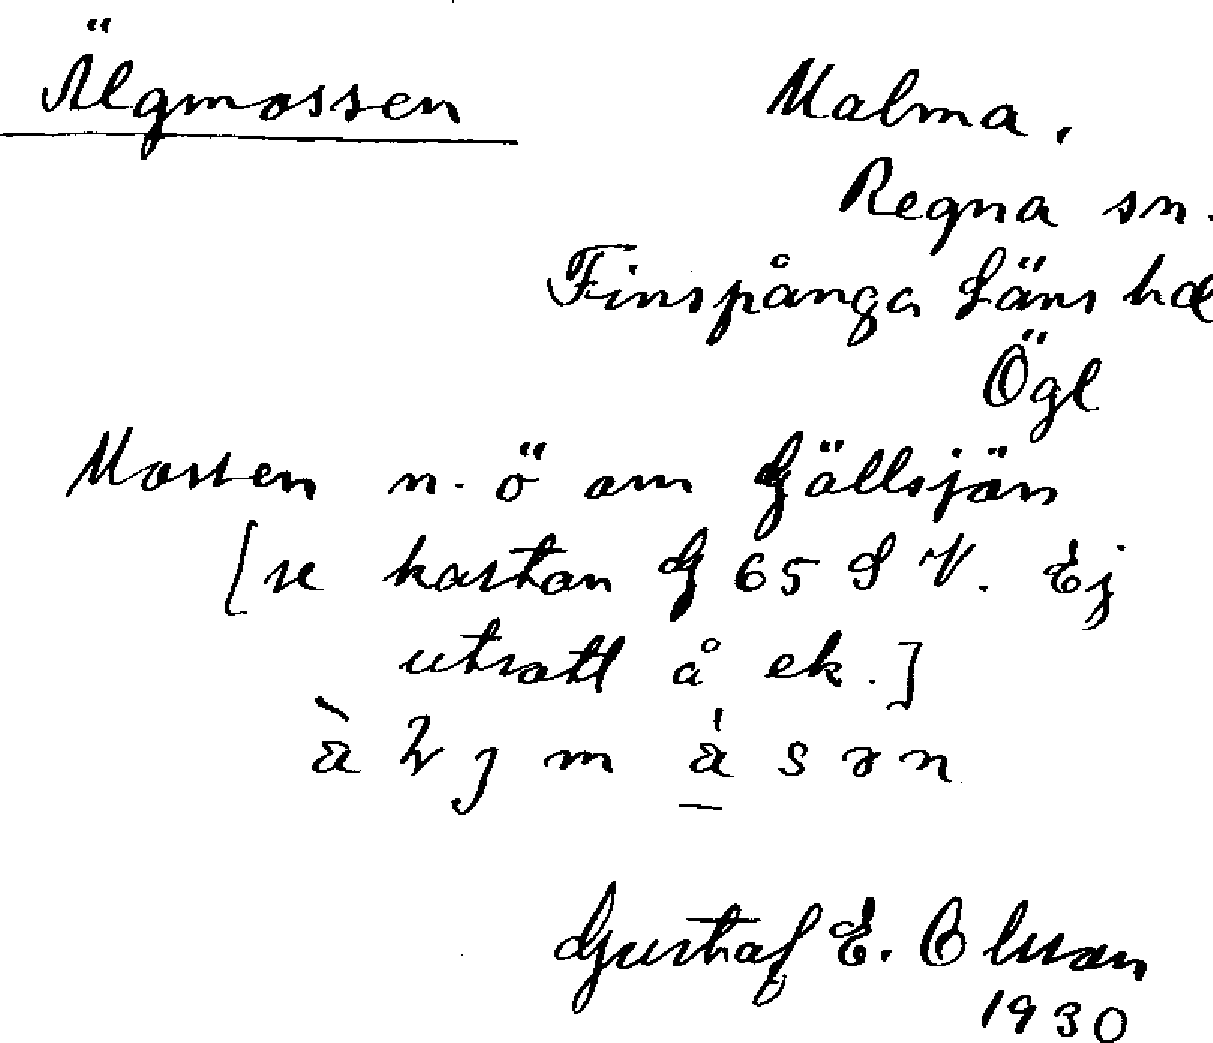 Älgmossen
Malma.
Regna sn.
Finspånga Läns hd
Ögl
Mossen n. ö om Gällsjön
[se kartan G 65 S V. Ej
utsatt å ek.]
Gustaf E. Olsson
1930